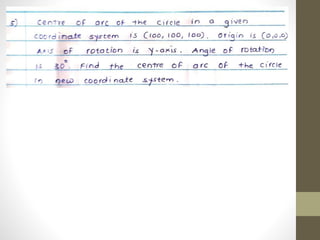 5) Centre of arc of the circle in a given
coordinate system is (100, 100, 100). Origin is (0,0,0)
Axis of rotation is Y-axis. Angle of rotation
is 30°. Find the centre of arc of the circle
in new coordinate system.